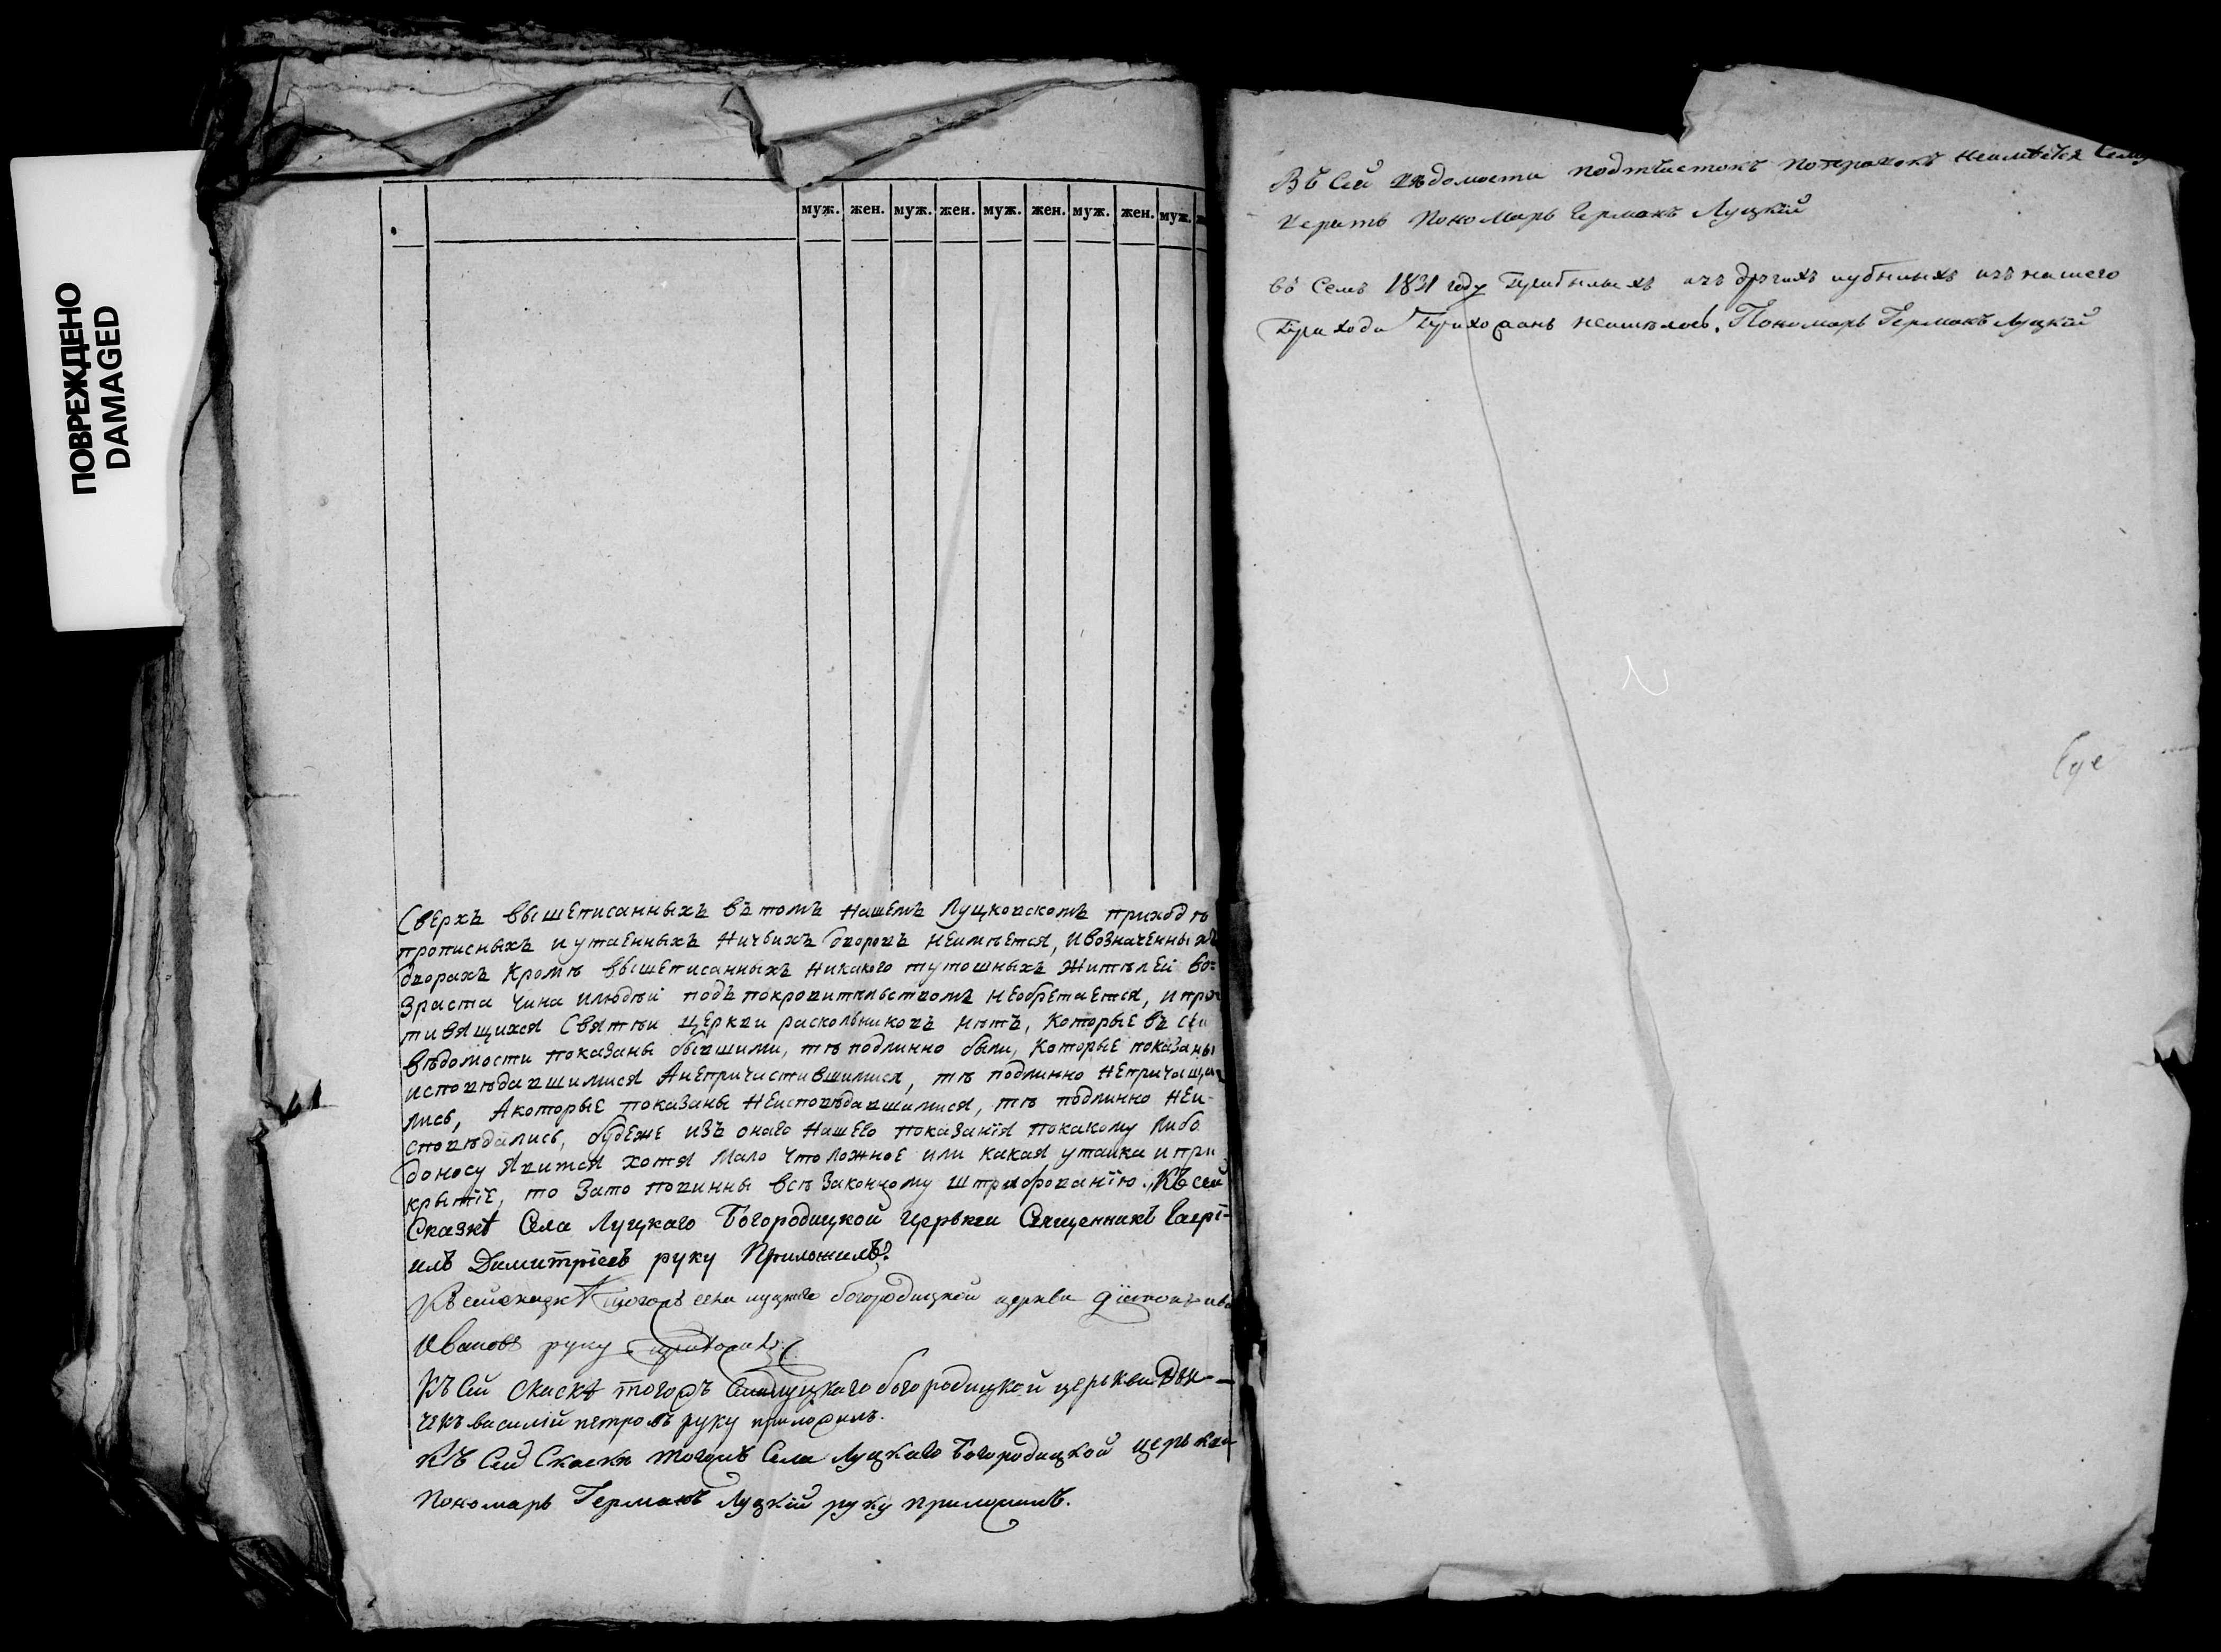 ПОВРЕЖДЕНО
DAMAGED
муж. жен. муж. жен. муж. жен. муж. жен. муж.
Сверхъ вышеписанныхъ въ томъ нашемъ Луцковскомъ приходѣ
прописныхъ и утаенныхъ ничьихъ дворовъ неимѣется, и возначенныхъ
дворахъ кромѣ вышеписанныхъ никакого тутошныхъ жителей во=
зраста чина илюдей подъ покровительствомъ необретается, и про
тивящихся Святѣи церкви раскольниковъ нѣтъ, которые въ сей
вѣдомости показаны бывшими, тѣ подлинно были, которые показаны
исповѣдавшимися Анепричастившимися, тѣ подлинно непричаща
лись, Акоторые показаны неисповѣдавшимися, тѣ подлинно неи-
сповѣдались, будеже изъ онаго нашего показанїя покакому либо
доносу явится хотя мало что ложное или какая утайка и при
крытїе, то зато повинны всѣ законному штрафованїю. Къ сей
Сказкѣ Села Луцкаго Богородицкой Церькви Священникъ Гаврї-
илъ Димитрїевъ руку Приложилъ.
Къ сей сказкѣ тогожъ села луцкаго богородицкой церкви дїаконъ
Ивановъ руку приложилъ
Къ сей скаскѣ тогожъ Села луцкаго богородицкой церькви Дья-
чекъ василїй петровъ руку приложилъ.
Къ Сей Скаскѣ тогожъ Села Луцкаго Богородицкой церькви
Пономарь Германъ Луцкїй руку приложилъ.
Въ Сей вѣдомости подчистокъ поправокъ неимѣется Сему
верить Пономарь Германъ Луцкїй
въ Семъ 1831 году Прибылыхъ изъ другихъ иубылыхъ изъ нашего
Прихода Прихожанъ неимѣлось. Пономарь Германъ Луцкїй